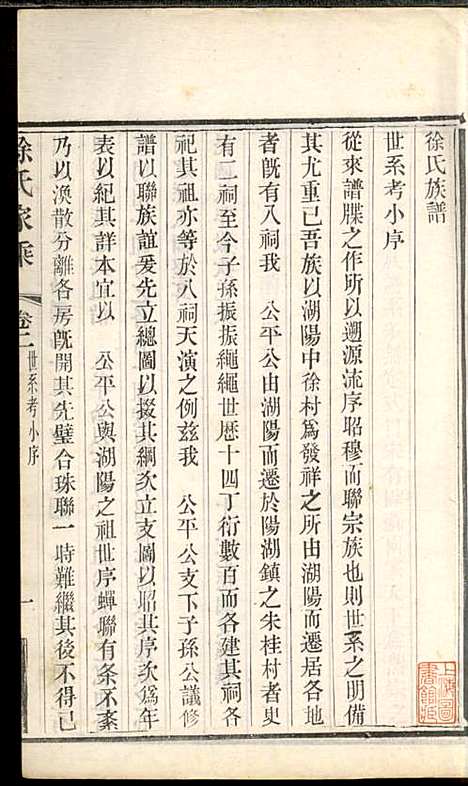 徐氏族譜
世系考小序
從來譜牒之作所以遡源流序昭穆而聯宗族也則世系之明備
其尤重已吾族以湖陽中徐村爲發祥之所由湖陽而遷居各地
者旣有八祠我　公平公由湖陽而遷於陽湖鎮之朱桂村者更
有二祠至今子孫振振繩繩世歷十四丁衍數百而各建其祠各
祀其祖亦等於八祠天演之例兹我　公平公支下子孫公議修
譜以聯族誼爰先立總圖以掇其綱次立支圖以昭其序次爲年
表以紀其詳本宜以　公平公與湖陽之祖世序蟬聯有条不紊
乃以渙散分離各房旣開其先璧合珠聯一時難繼其後不得已
徐氏家乘
卷二　世系考小序
一
上海圖書館藏